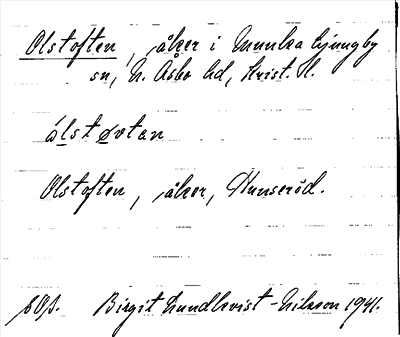 Olstoften, åker i Munka Ljungby
sn, N. Åsbo hd, Krist. l.
ólstøvtan
Olstoften, åker, Hunseröd.
Birgit Lundkvist-Nilsson 1941.